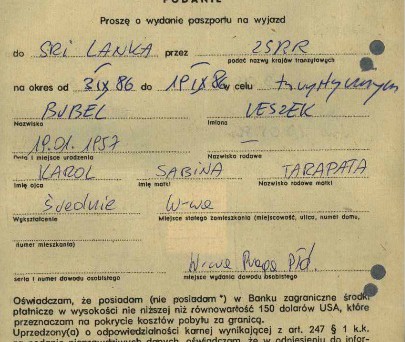 PODANIE
Proszę o wydanie paszportu na wyjazd
do SRI LANKA przez ZSRR
podać nazwy krajów tranzytowych
na okres od 3 IX 86 do 19 IX 86 w celu turystycznym
BUBEL LESZEK
Nazwisko Imiona
19.01.1957 —
Data i miejsce urodzenia Nazwisko rodowe
KAROL SABINA TARAPATA
Imię ojca Imię matki Nazwisko rodowe matki
Średnie W-wa
Wykształcenie Miejsce stałego zamieszkania (miejscowość, ulica, numer domu,
numer mieszkania)
W-wa Praga Płd.
seria i numer dowodu osobistego miejsce wydania dowodu osobistego
Oświadczam, że posiadam (nie posiadam*) w Banku zagraniczne środki
płatnicze w wysokości nie niższej niż równowartość 150 dolarów USA, które
przeznaczam na pokrycie kosztów pobytu za granicą.
Uprzedzony(a) o odpowiedzialności karnej wynikającej z art. 247 § 1 k.k.